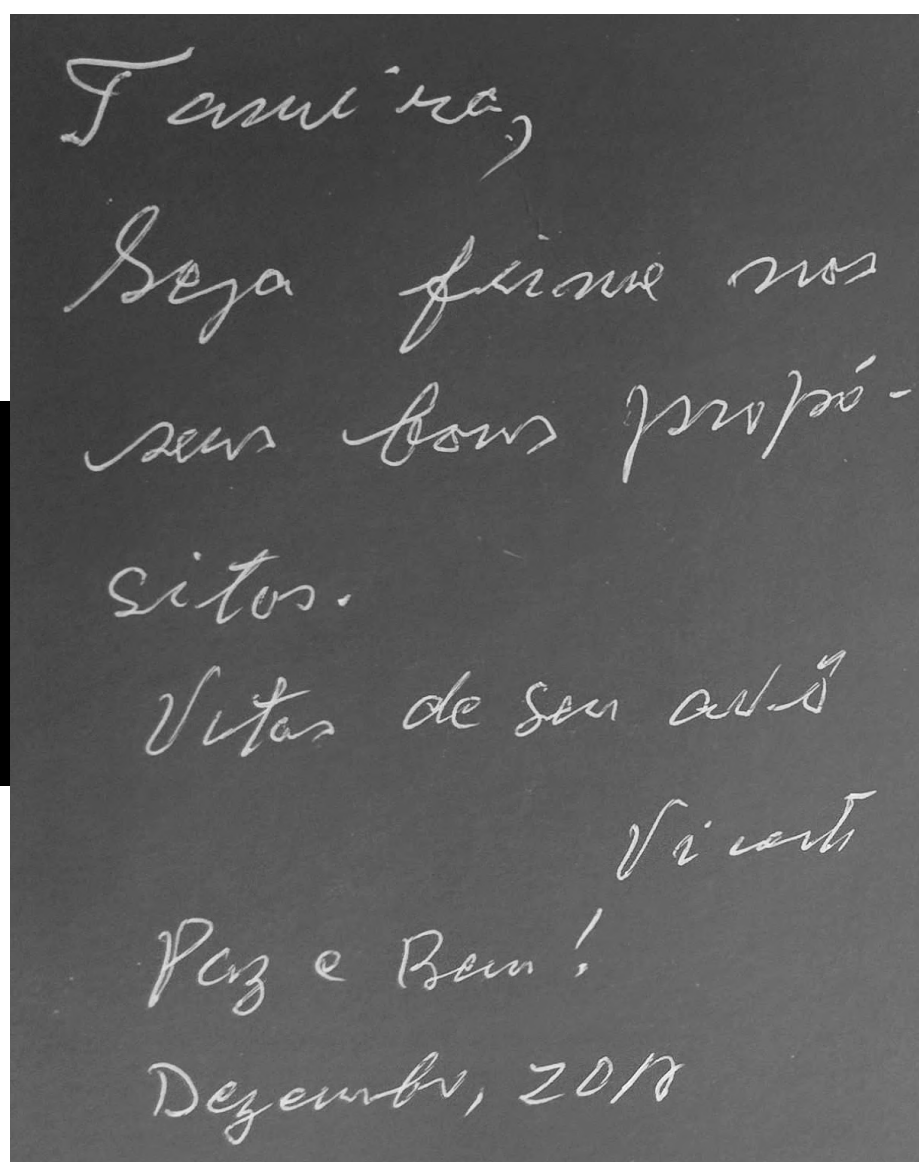 Tamira,
Seja firme nos
seus bons propó-
sitos.
Votos de seu avô
Vicente
Paz e Bem!
Dezembro,